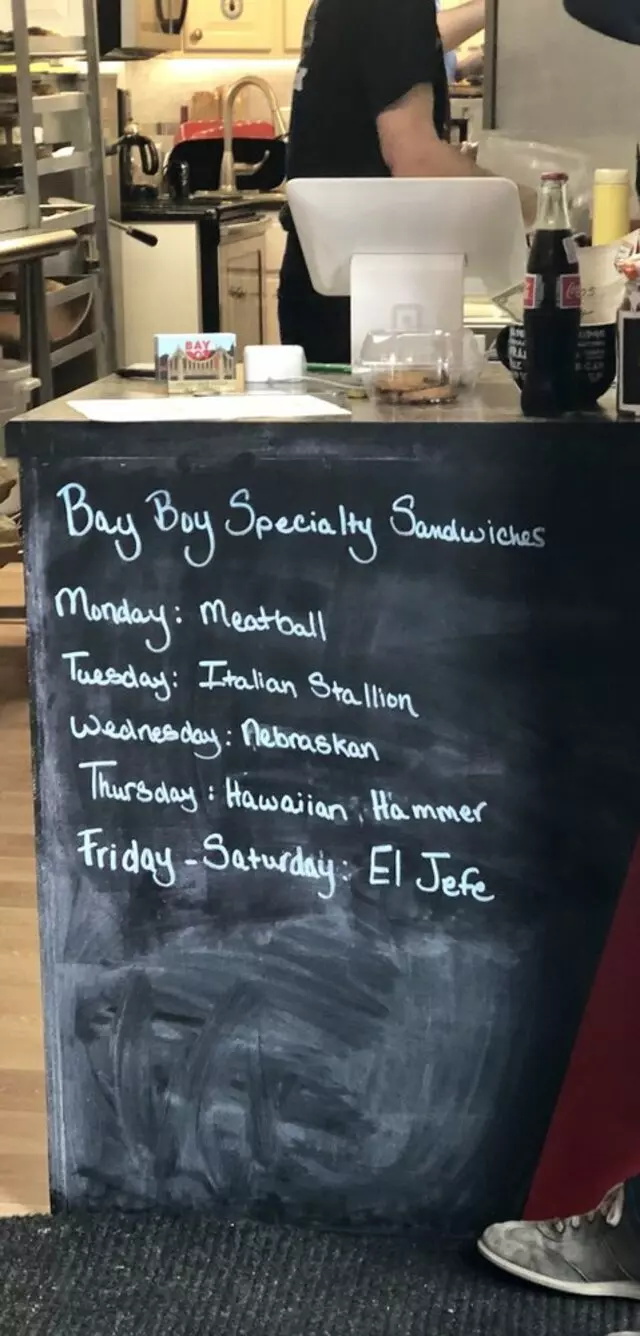 BAY
BOY
Coca
Bay Boy Specialty Sandwiches
Monday: Meatball
Tuesday: Italian Stallion
Wednesday: Nebraskan
Thursday: Hawaiian Hammer
Friday - Saturday: El Jefe